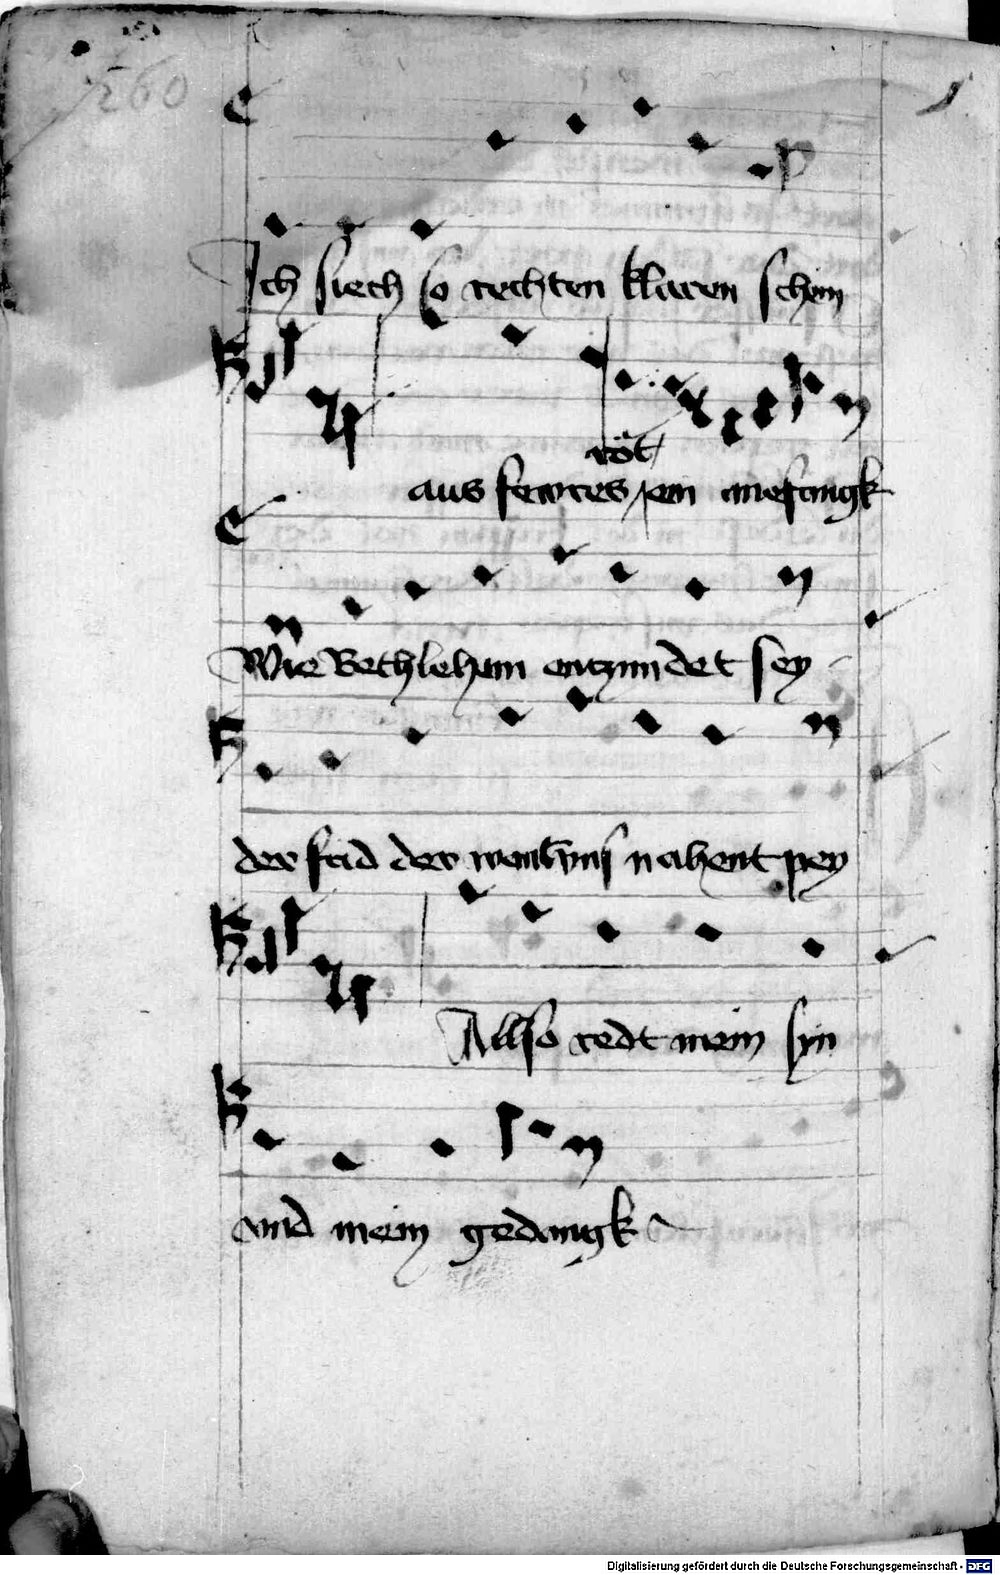 260
Ich siech so rechten klaren schein
röt
aus fewres pein anefangk
Wie Bethlehem entzundet sey
der frid der nahent pey
Allso redt mein syn
vnd mein gedangk
Digitalisierung gefördert durch die Deutsche Forschungsgemeinschaft - DFG